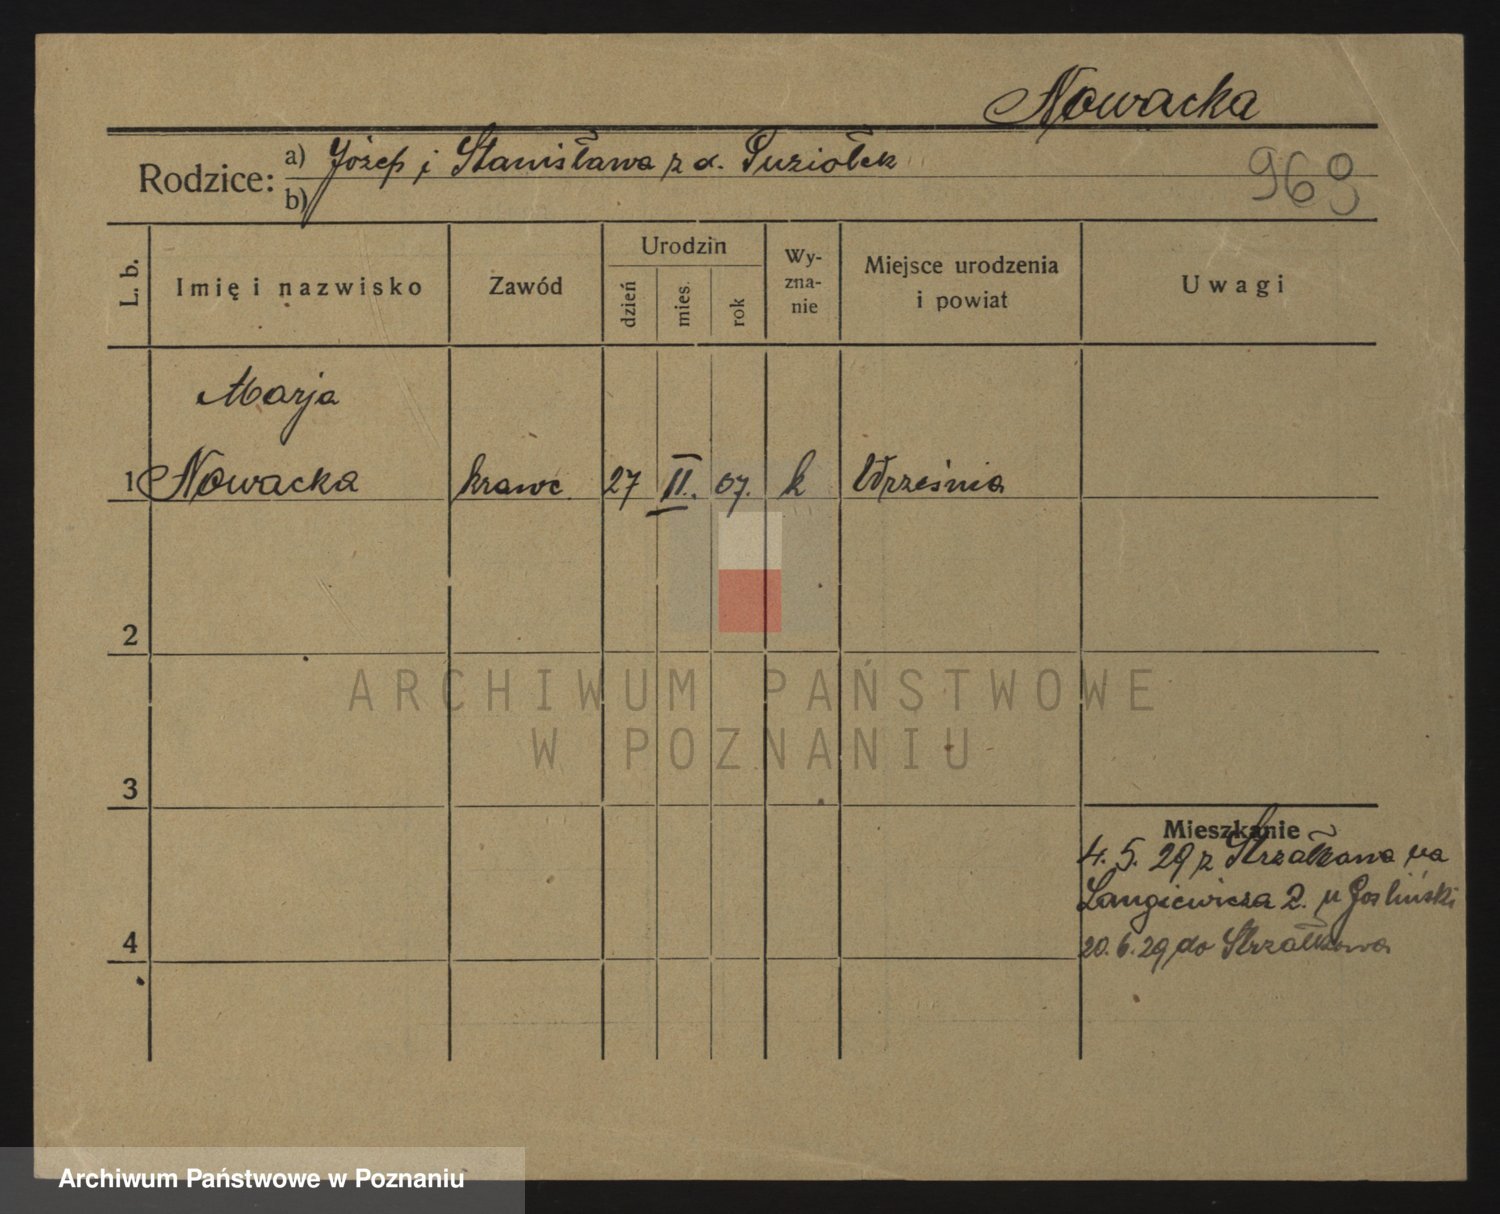 Nowacka
Rodzice: a) Józef i Stanisława z d. Puziołek
b)
968
L. b. Imię i nazwisko Zawód Urodzin dzień mies. rok Wy-zna-nie Miejsce urodzenia i powiat Uwagi
Marja
1 Nowacka krawc. 27 II. 07. k Września
2
ARCHIWUM PAŃSTWOWE
W POZNANIU
3
Mieszkanie
4. 5. 29 z Strzałkowa na
Langiewicza 2. u Gosliński
4
20. 6. 29 do Strzałkowa
Archiwum Państwowe w Poznaniu